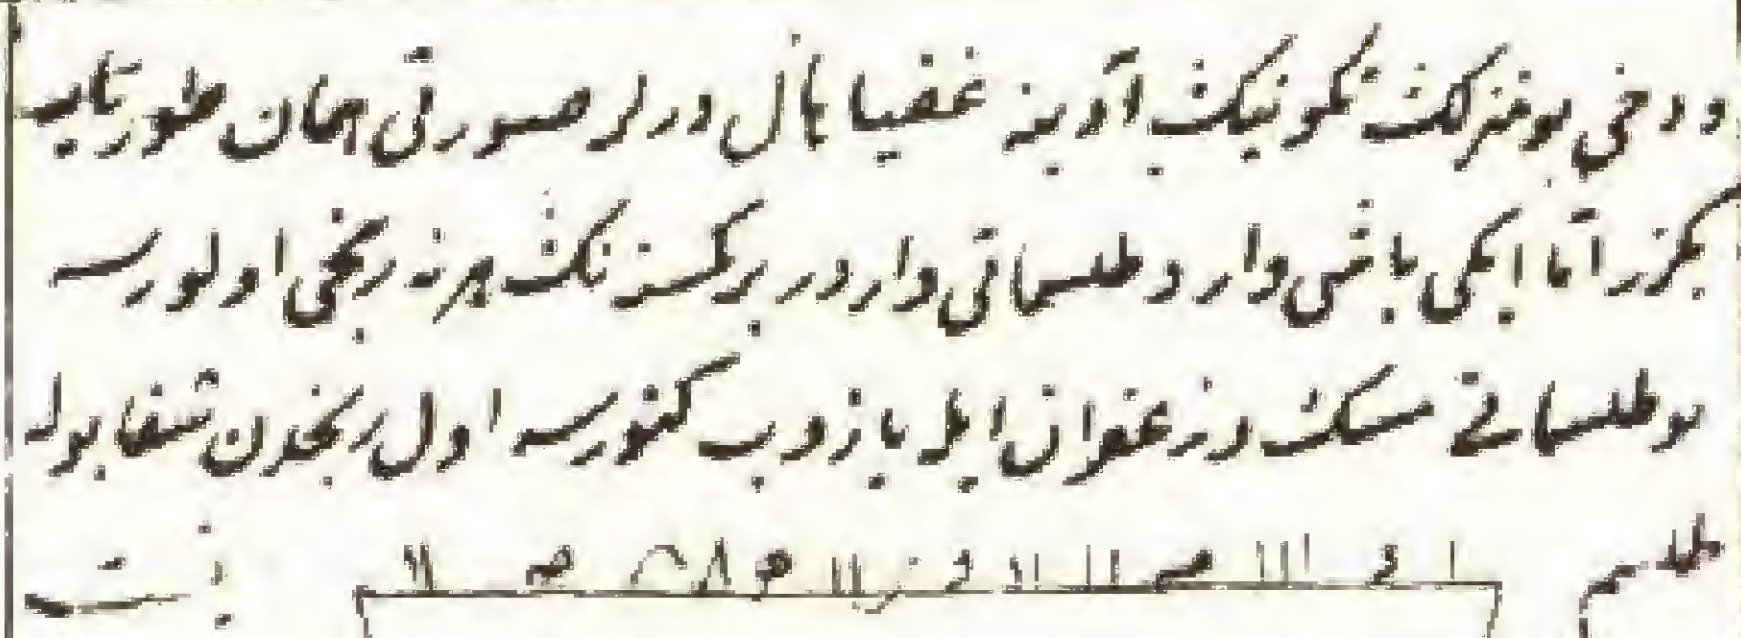 و دخی بو منزلك كونینك آدینه غفیائل درلر صورتی همان طور تایه
بكزر اما ایكی باشی وار و طلسماتی واردر بر كسنه نك هر نه رنجی اولورسه
بو طلسماتی مسك و زعفران ایله یازوب كتورسه اول رنجدن شفا بوله
طلسم